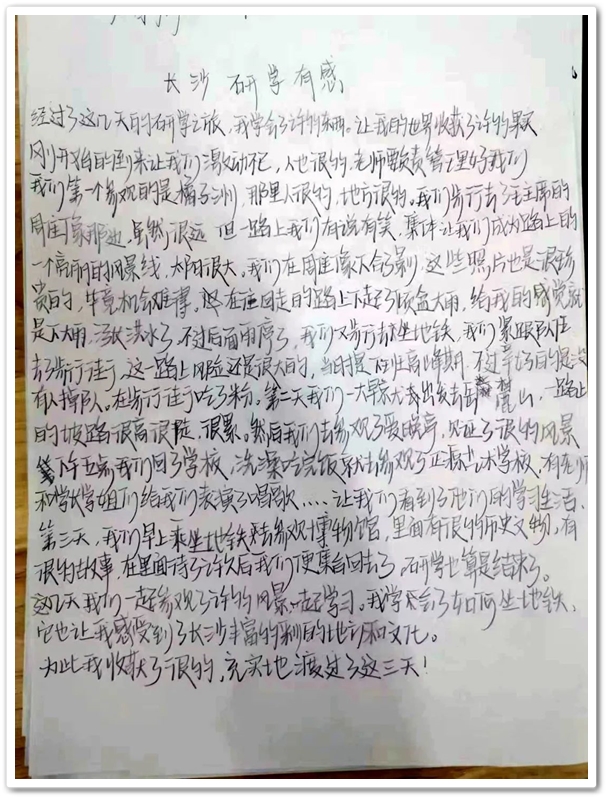 长沙研学有感
经过了这几天的研学之旅，我学会了许多东西。让我的世界收获了许多果实
刚开始的到来让我们激动不已，人也很多，老师要负责管理好我们
我们第一个参观的是橘子洲，那里人很多，地方很多。我们步行去了毛主席的
周座像那边，虽然很远，但一路上我们有说有笑，集体让我们成为路上的
一个亮丽的风景线，太阳很大，我们在周座像下合了影，这些照片也是很珍
贵的，毕竟机会难得。在回走的路上下起了倾盆大雨，给我的感觉就
是下大雨，涨洪水了。不过后面雨停了，我们又步行去坐地铁，我们紧跟队伍
去了步行街，这一路上风险还是很大的，当时是下班高峰期，不过幸好的是没
有人掉队。在步行街吃了粉。第二天我们一大早就出发去岳麓山，一路上
的坡路很高很陡，很累。然后我们去参观了爱晚亭，见证了很多风景
下午五点我们回了学校，洗澡吃完饭就去参观了正源山水学校，有老师
和学长学姐们给我们表演了唱歌……让我们看到了他们的学习生活。
第三天，我们早上乘坐地铁去参观博物馆，里面有很多历史文物，有
很多故事，在里面待了许久后我们便集合回去了，研学也算是结束了。
这几天我们一起参观了许多风景，一起学习。我学会了如何坐地铁，
它也让我感受到了长沙丰富多彩的地方和文化。
为此我收获了很多，充实地渡过了这三天！